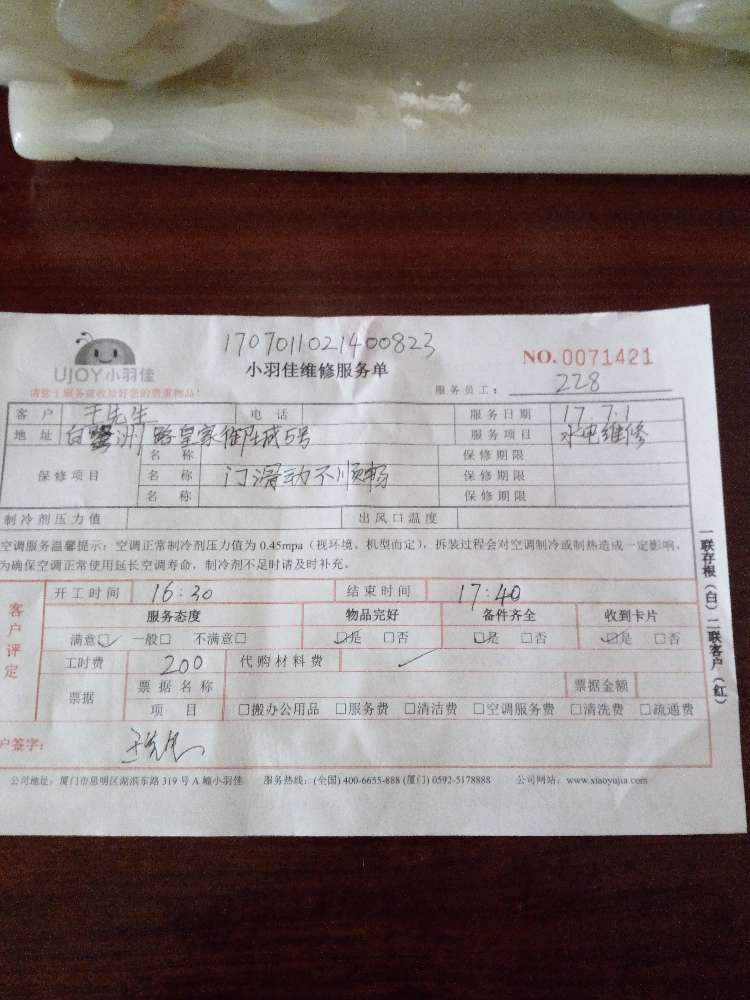 1707011021400823
UJOY小羽佳
小羽佳维修服务单
NO.0071421
请您主动妥善收拾好您的贵重物品!
服务员工: 228
客户 王先生 电话 服务日期 17.7.1
地址 白鹭洲路皇家御庄城5号 服务项目 水电维修
保修项目
名称 保修期限
名称 门滑动不顺畅 保修期限
名称 保修期限
制冷剂压力值 出风口温度
空调服务温馨提示:空调正常制冷剂压力值为0.45mpa(视环境、机型而定),拆装过程会对空调制冷或制热造成一定影响,
为确保空调正常使用延长空调寿命,制冷剂不足时请及时补充。
客户评定
开工时间 16:30 结束时间 17:40
服务态度 物品完好 备件齐全 收到卡片
满意☑ 一般□ 不满意□ ☑是 □否 ☑是 □否 ☑是 □否
工时费 200 代购材料费
票据
票据名称 票据金额
项目 □搬办公用品 □服务费 □清洁费 □空调服务费 □清洗费 □疏通费
户签字: 王先生
公司地址:厦门市思明区湖滨东路319号A幢小羽佳 服务热线:(全国)400-6655-888 (厦门)0592-5178888 公司网站:www.xiaoyujia.com
一联存根(白)二联客户(红)